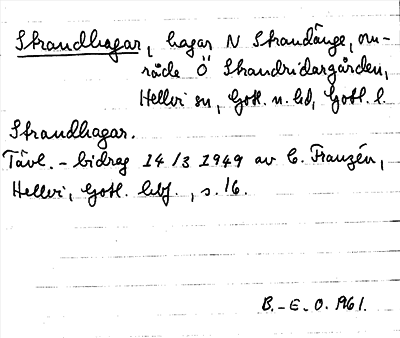 Strandhagar, hagar N Strandänge, om-
råde Ö Strandridargården,
Hellvi sn, Gotl. n. hd, Gotl. l.
Strandhagar.
Tävl. - bidrag 14/3 1949 av C. Franzén,
Hellvi, Gotl. s. 16.
B. - E. O. 1961.